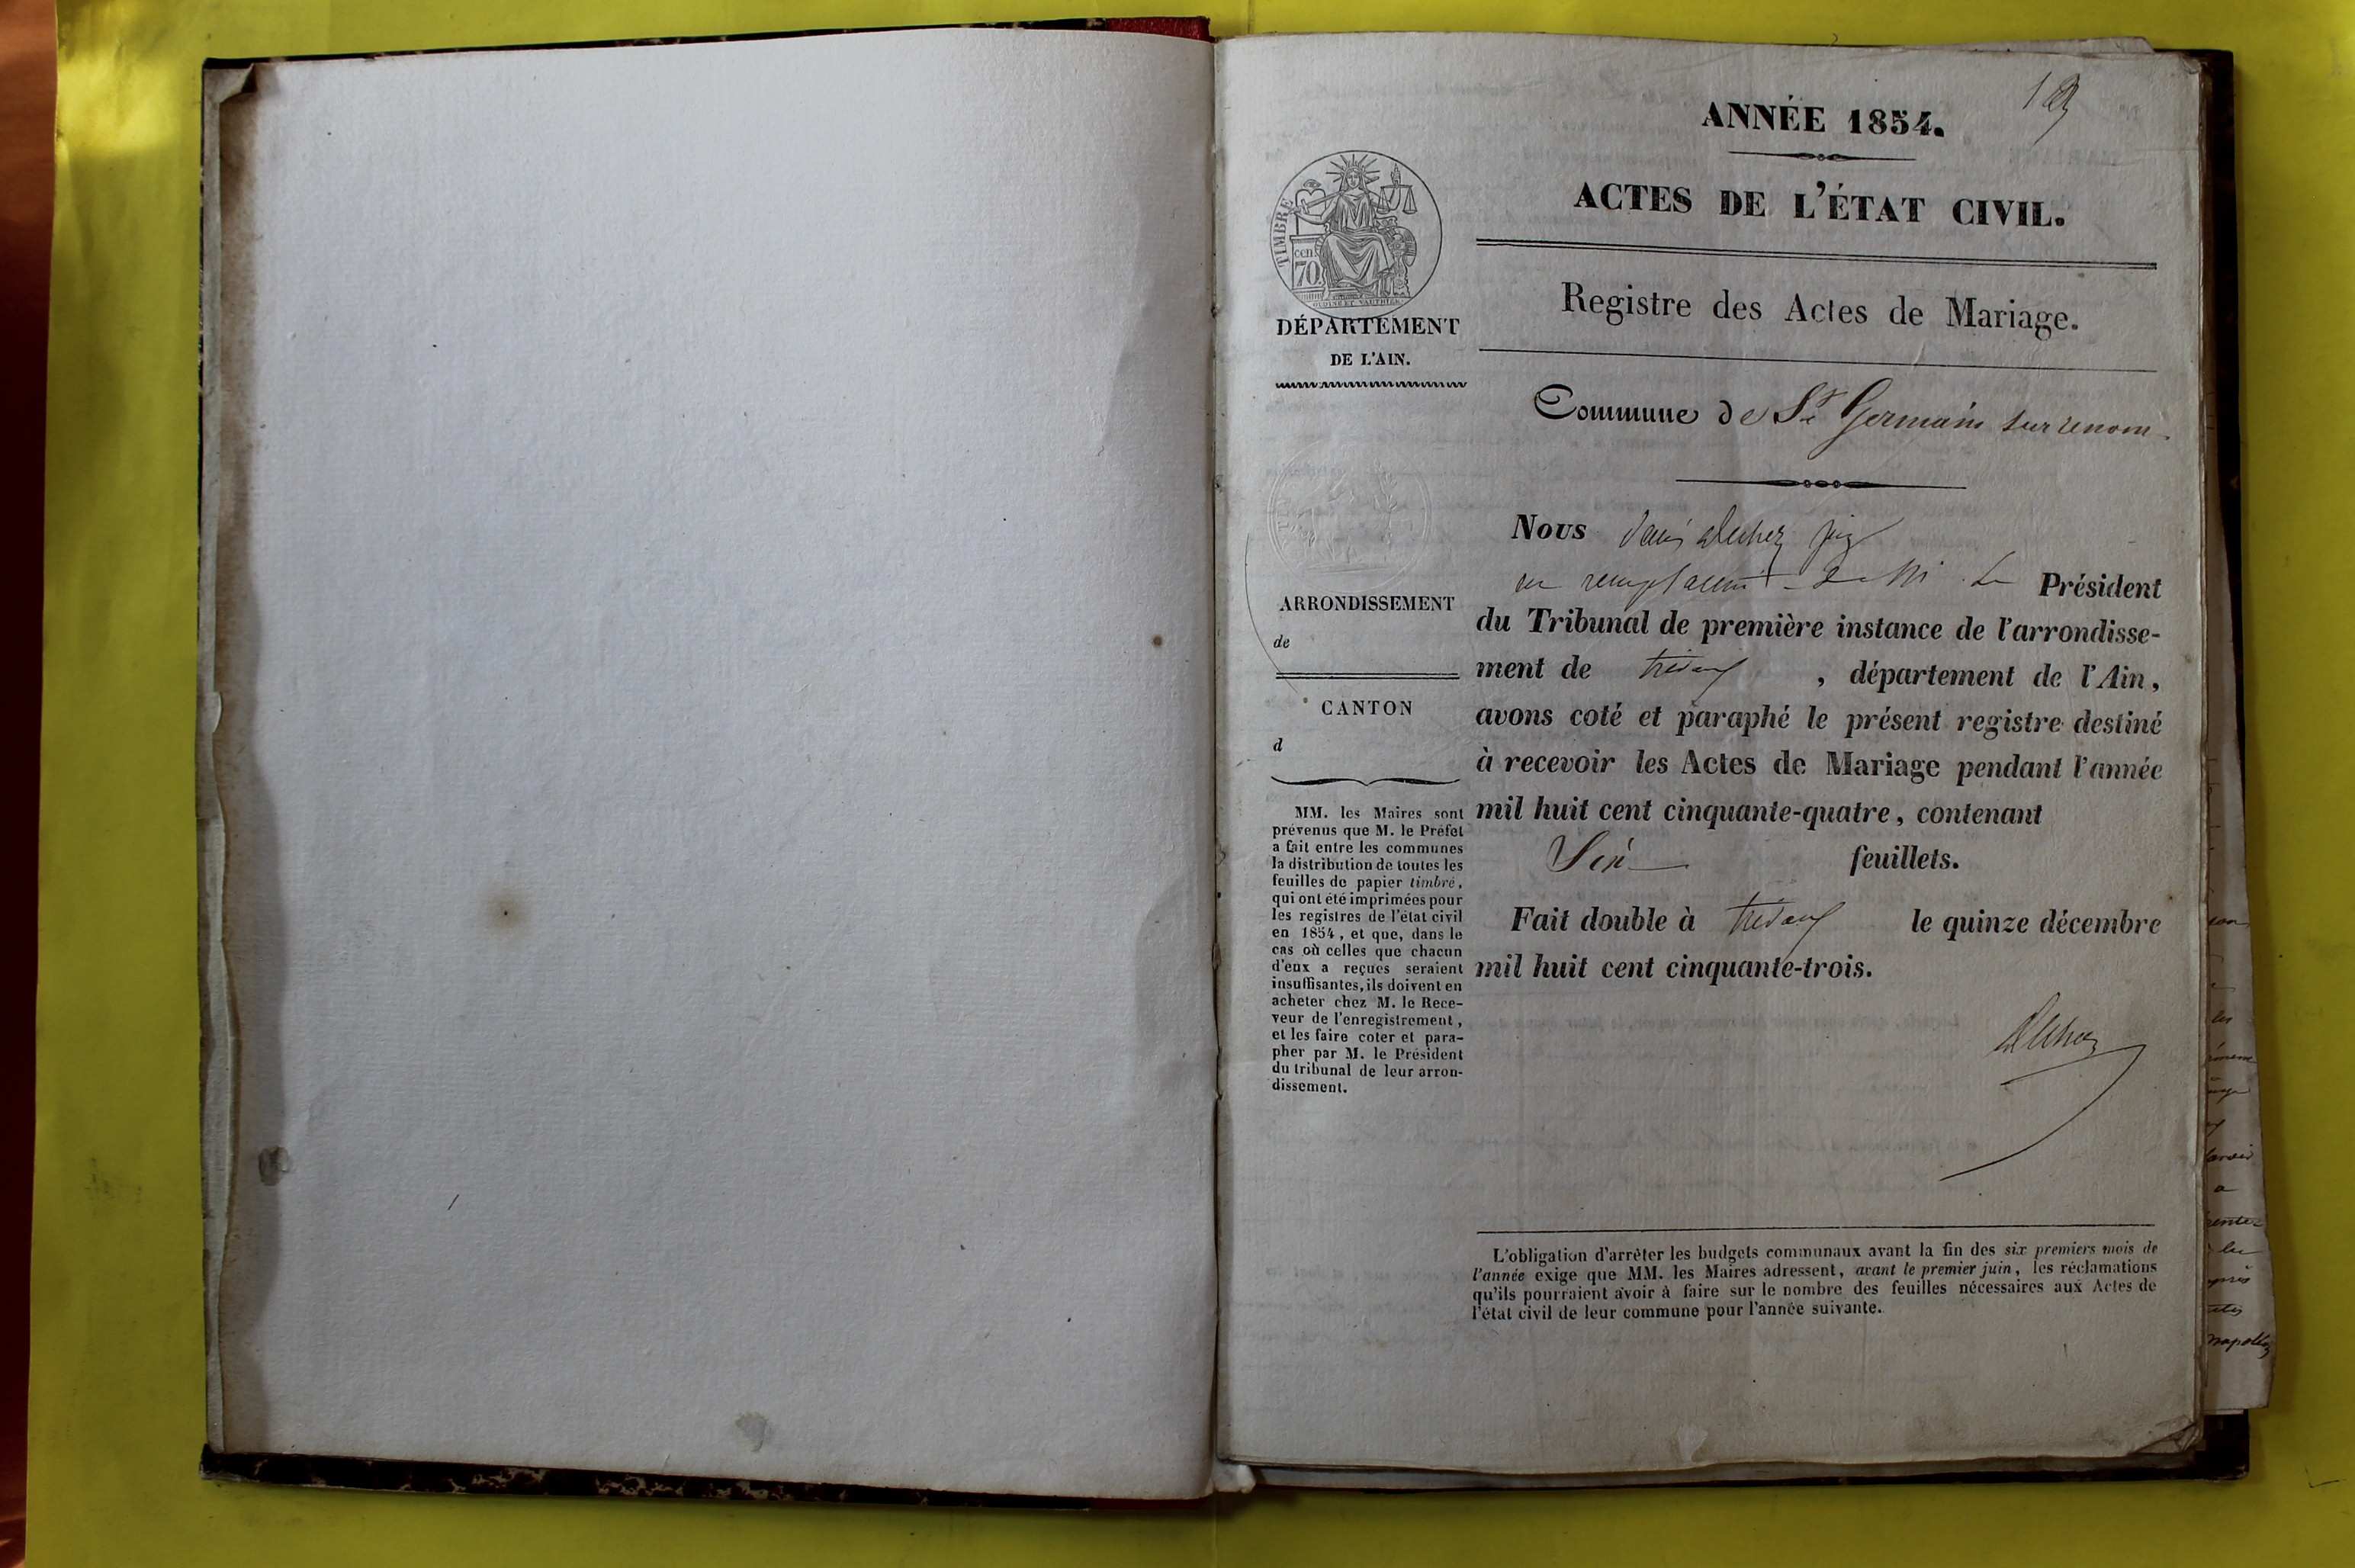 ANNÉE 1854.
ACTES DE L'ÉTAT CIVIL.
TIMBRE
cen
70
DÉPARTEMENT
DE L'AIN.
Registre des Actes de Mariage.
Commune de St Germain sur renom
ARRONDISSEMENT
de
CANTON
d
MM. les Maires sont
prévenus que M. le Préfet
a fait entre les communes
la distribution de toutes les
feuilles de papier timbré,
qui ont été imprimées pour
les registres de l'état civil
en 1854, et que, dans le
cas où celles que chacun
d'eux a reçues seraient
insuffisantes, ils doivent en
acheter chez M. le Rece-
veur de l'enregistrement,
et les faire coter et para-
pher par M. le Président
du tribunal de leur arron-
dissement.
Nous
en remplacemt de M. le Président
du Tribunal de première instance de l'arrondisse-
ment de trevoux, département de l'Ain,
avons coté et paraphé le présent registre destiné
à recevoir les Actes de Mariage pendant l'année
mil huit cent cinquante-quatre, contenant
Six feuillets.
Fait double à trevoux le quinze décembre
mil huit cent cinquante-trois.
L'obligation d'arrêter les budgets communaux avant la fin des six premiers mois de
l'année exige que MM. les Maires adressent, avant le premier juin, les réclamations
qu'ils pourraient avoir à faire sur le nombre des feuilles nécessaires aux Actes de
l'état civil de leur commune pour l'année suivante.